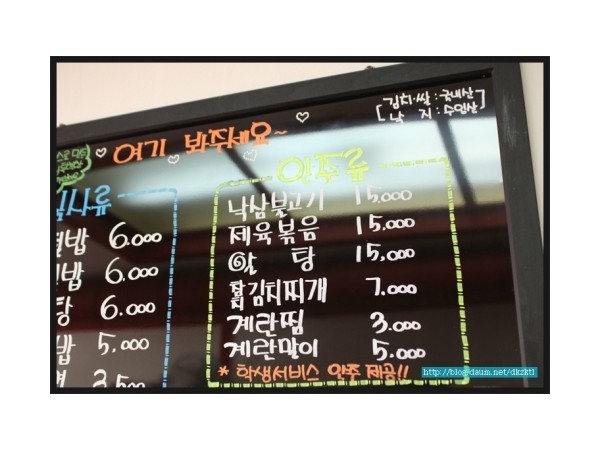 [김치·쌀:국내산
낙지:수입산]
여기 봐주세요~
안주류
낙삼불고기 15,000
제육볶음 15,000
알 탕 15,000
김치찌개 7,000
계란찜 3,000
계란말이 5,000
* 학생서비스 안주 제공!!
사류
밥 6,000
밥 6,000
탕 6,000
밥 5,000
3,500
http://blog.daum.net/dkzktl